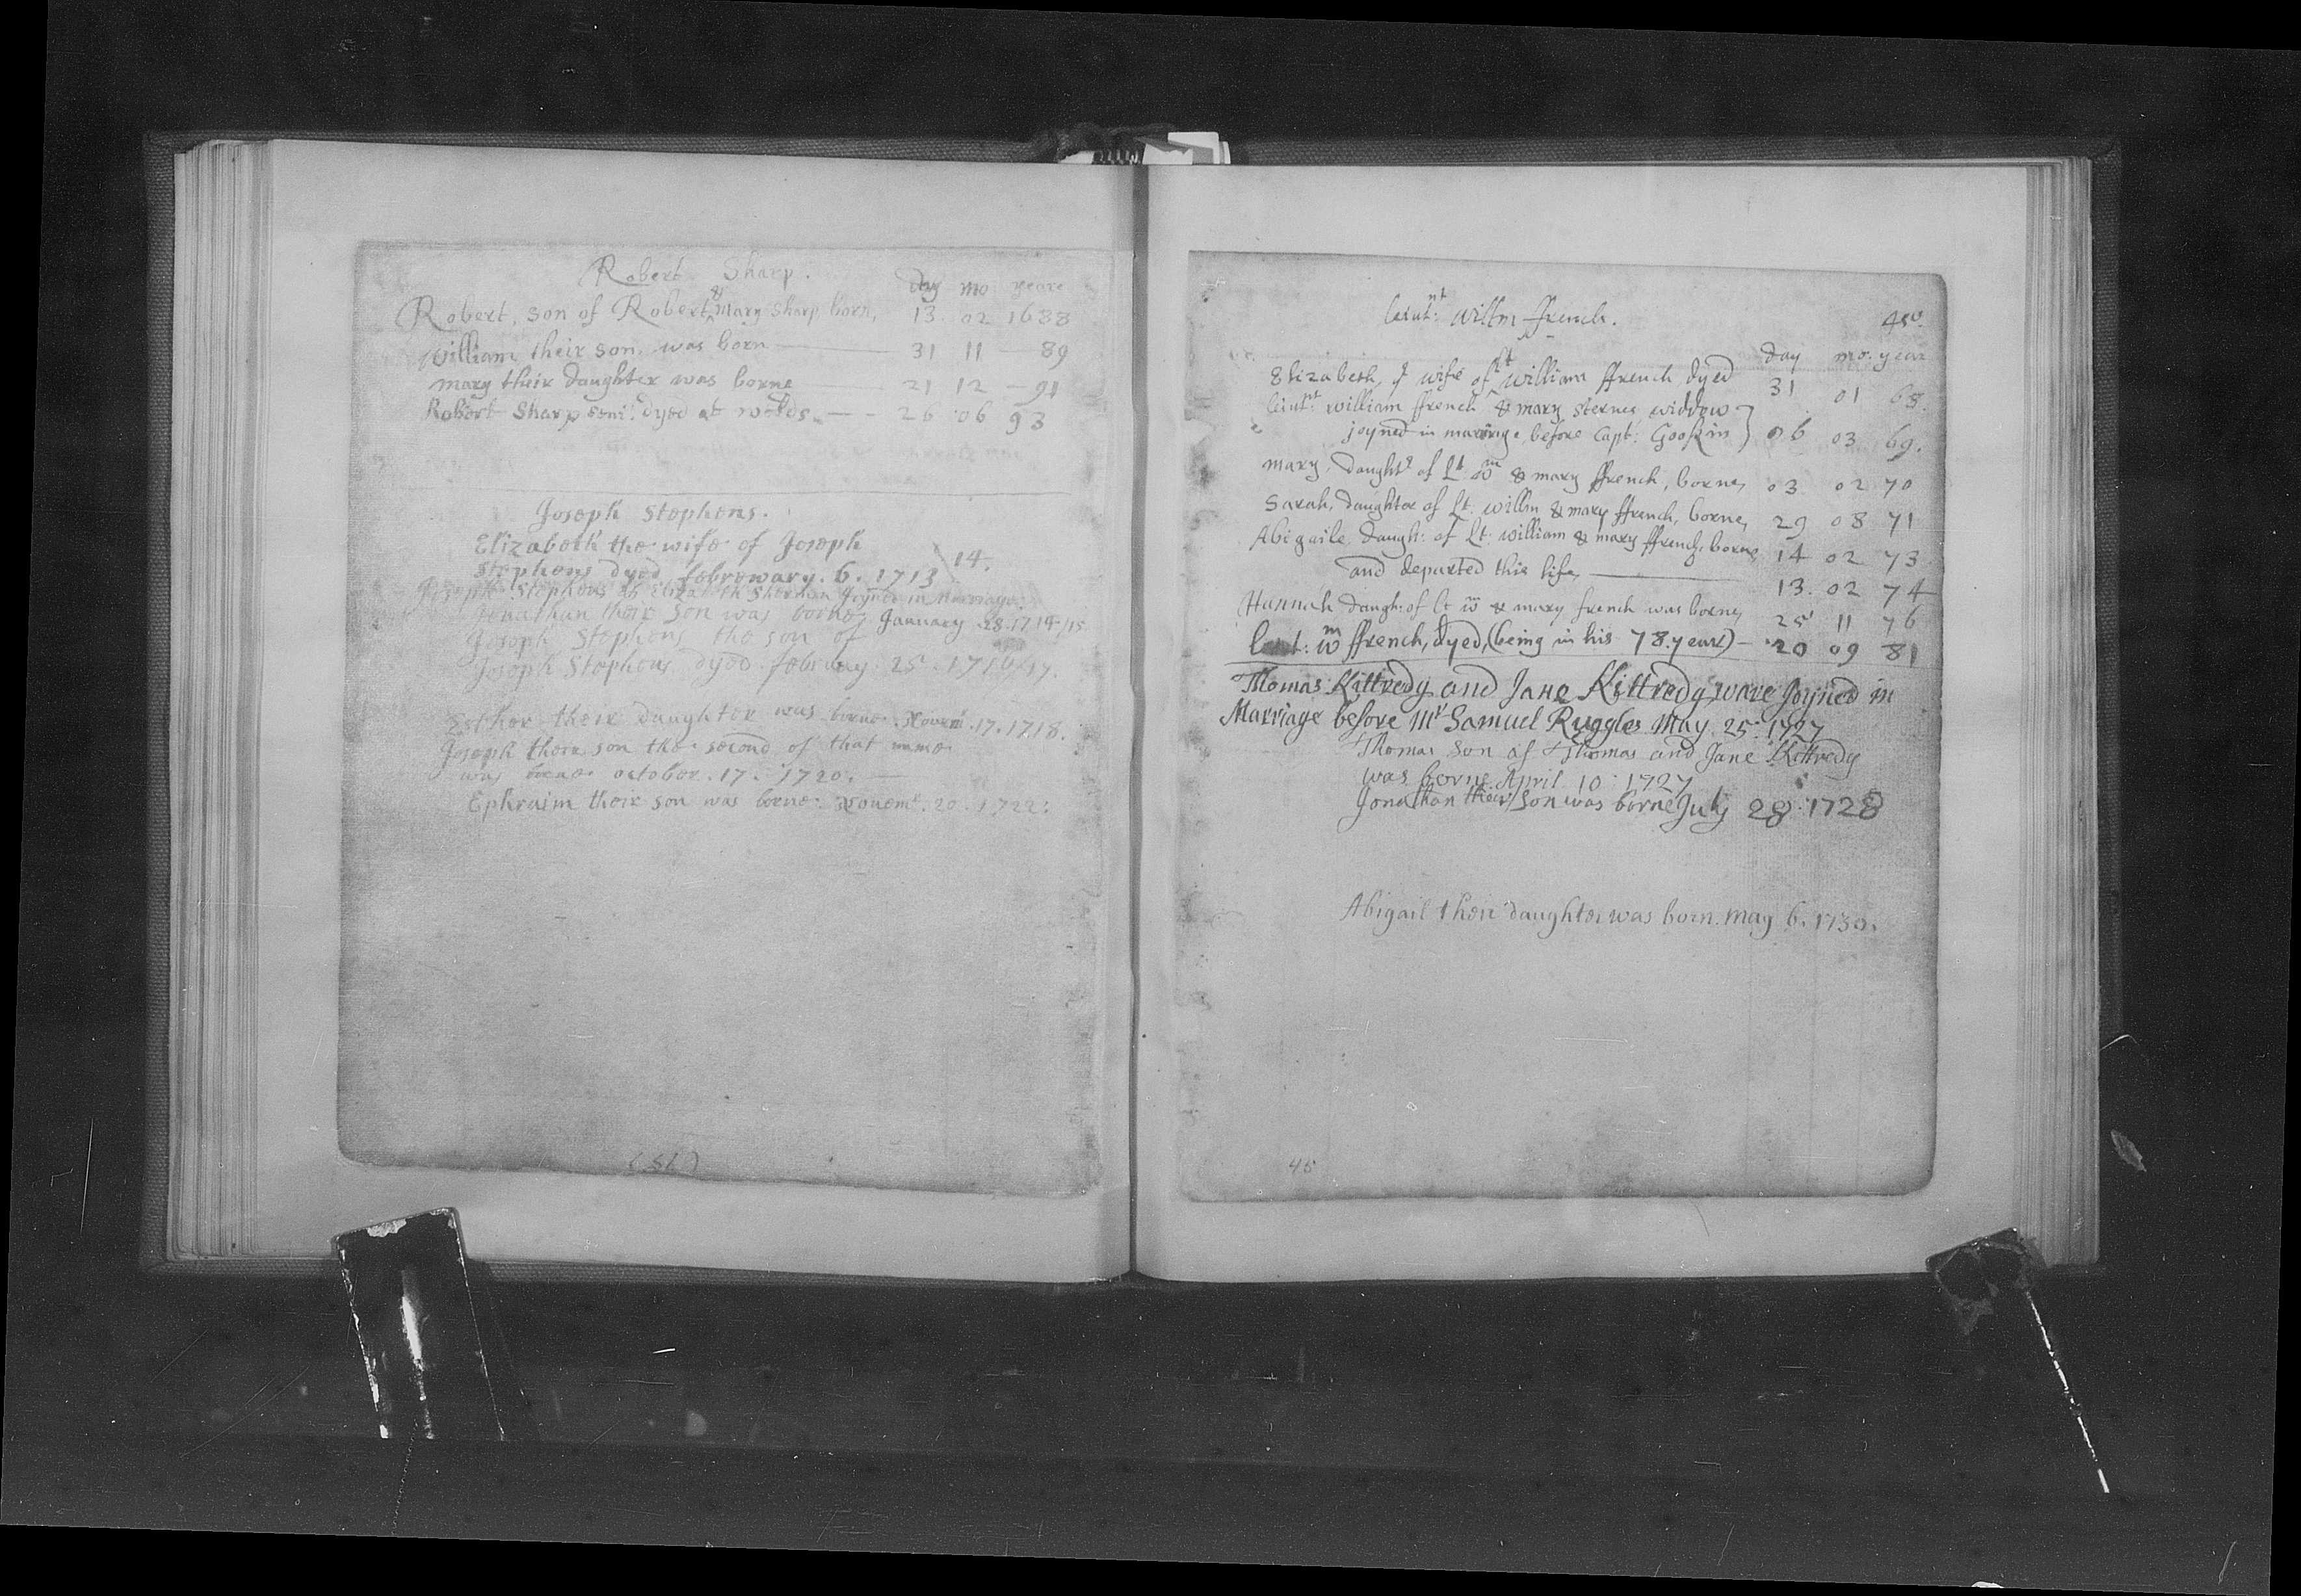 Robert Sharp.
day mo yeare
Robert, son of Robert & mary Sharp born, 13 02 1688
William their son was born — 31 11 — 89
mary their daughter was borne 21 12 — 91
Robert Sharp seni: dyed at — 26 06 93
Joseph Stephens.
Elizabeth the wife of Joseph
Stephens dyed februwary. 6. 1713 \ 14.
Joseph Stephens Elizabeth Sherman Joyned in marriage.
Jonathan their Son was borne January 28. 1714/15
Joseph Stephens the son of
Joseph Stephens dyed february 25. 1716/17.
Esther their daughter was borne Novem: 17. 1718.
Joseph their son the second of that name
was borne october. 17. 1720. —
Ephraim their son was borne. Nouemr. 20. 1722:
(51)
leiut:nt willm ffrench. 45
day mo: year
Elizabeth, ye wife of Lt william ffrench dyed 31 01 68.
leiut:nt william ffrench & mary sternes widdow }
joyned in mariage, before Capt: Gookin } 06 03 69.
mary daughtr of Lt wm & mary ffrench, borne, 03 02 70
Sarah, daughter of Lt. willm & mary ffrench, borne, 29 08 71
Abigaile daugh: of Lt: william & mary ffrench: borne 14 02 73
and departed this life, — 13. 02 74
Hannah daugh: of Lt wm & mary french was borne, 25 11 76
: wm ffrench, dyed, (being in his 78. year) — 20 09 81
Thomas Kittredg and Jane Kittredg ware Joyned in
Marriage before Mr Samuel Ruggles May. 25: 1727
Thomas Son of Thomas and Jane Kittredg
was borne April 10: 1727
Jonathan their Son was borne July 28: 1728
Abigail their daughter was born. may 6. 1730.
45